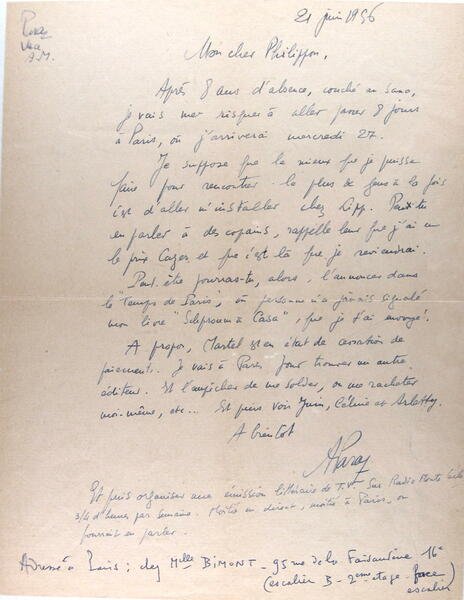 Paraz
Vence
A.M.
21 juin 1956
Mon cher Philippon,
Après 8 ans d'absence, couché au sana,
je vais me risquer à aller passer 8 jours
à Paris, où j'arriverai mercredi 27.
Je suppose que le mieux que je puisse
faire pour rencontrer le plus de gens à la fois
c'est d'aller m'installer chez Lipp. Peux-tu
en parler à des copains, rappelle leur que j'ai eu
le prix Cazes et que c'est là que je reviendrai.
Peut-être pourras-tu, alors, l'annoncer dans
le "Temps de Paris", où personne n'a jamais signalé
mon livre "Schproum à Casa", que je t'ai envoyé!
A propos, Martel est en état de cessation de
paiements. Je vais à Paris pour trouver un autre
éditeur. Et l'empêcher de me solder, ou me racheter
moi-même, etc... Et puis voir Juin, Céline et Arletty.
A bientôt
AParaz
Et puis organiser une émission littéraire de T.V. sur Radio Monte Carlo
3/4 d'heures par semaine. Moitié en direct, moitié à Paris, on
pourrait en parler.
Adresse à Paris : chez Melle BIMONT - 95 rue de la Faisanderie 16e
(escalier B - 2eme étage - face
escalier